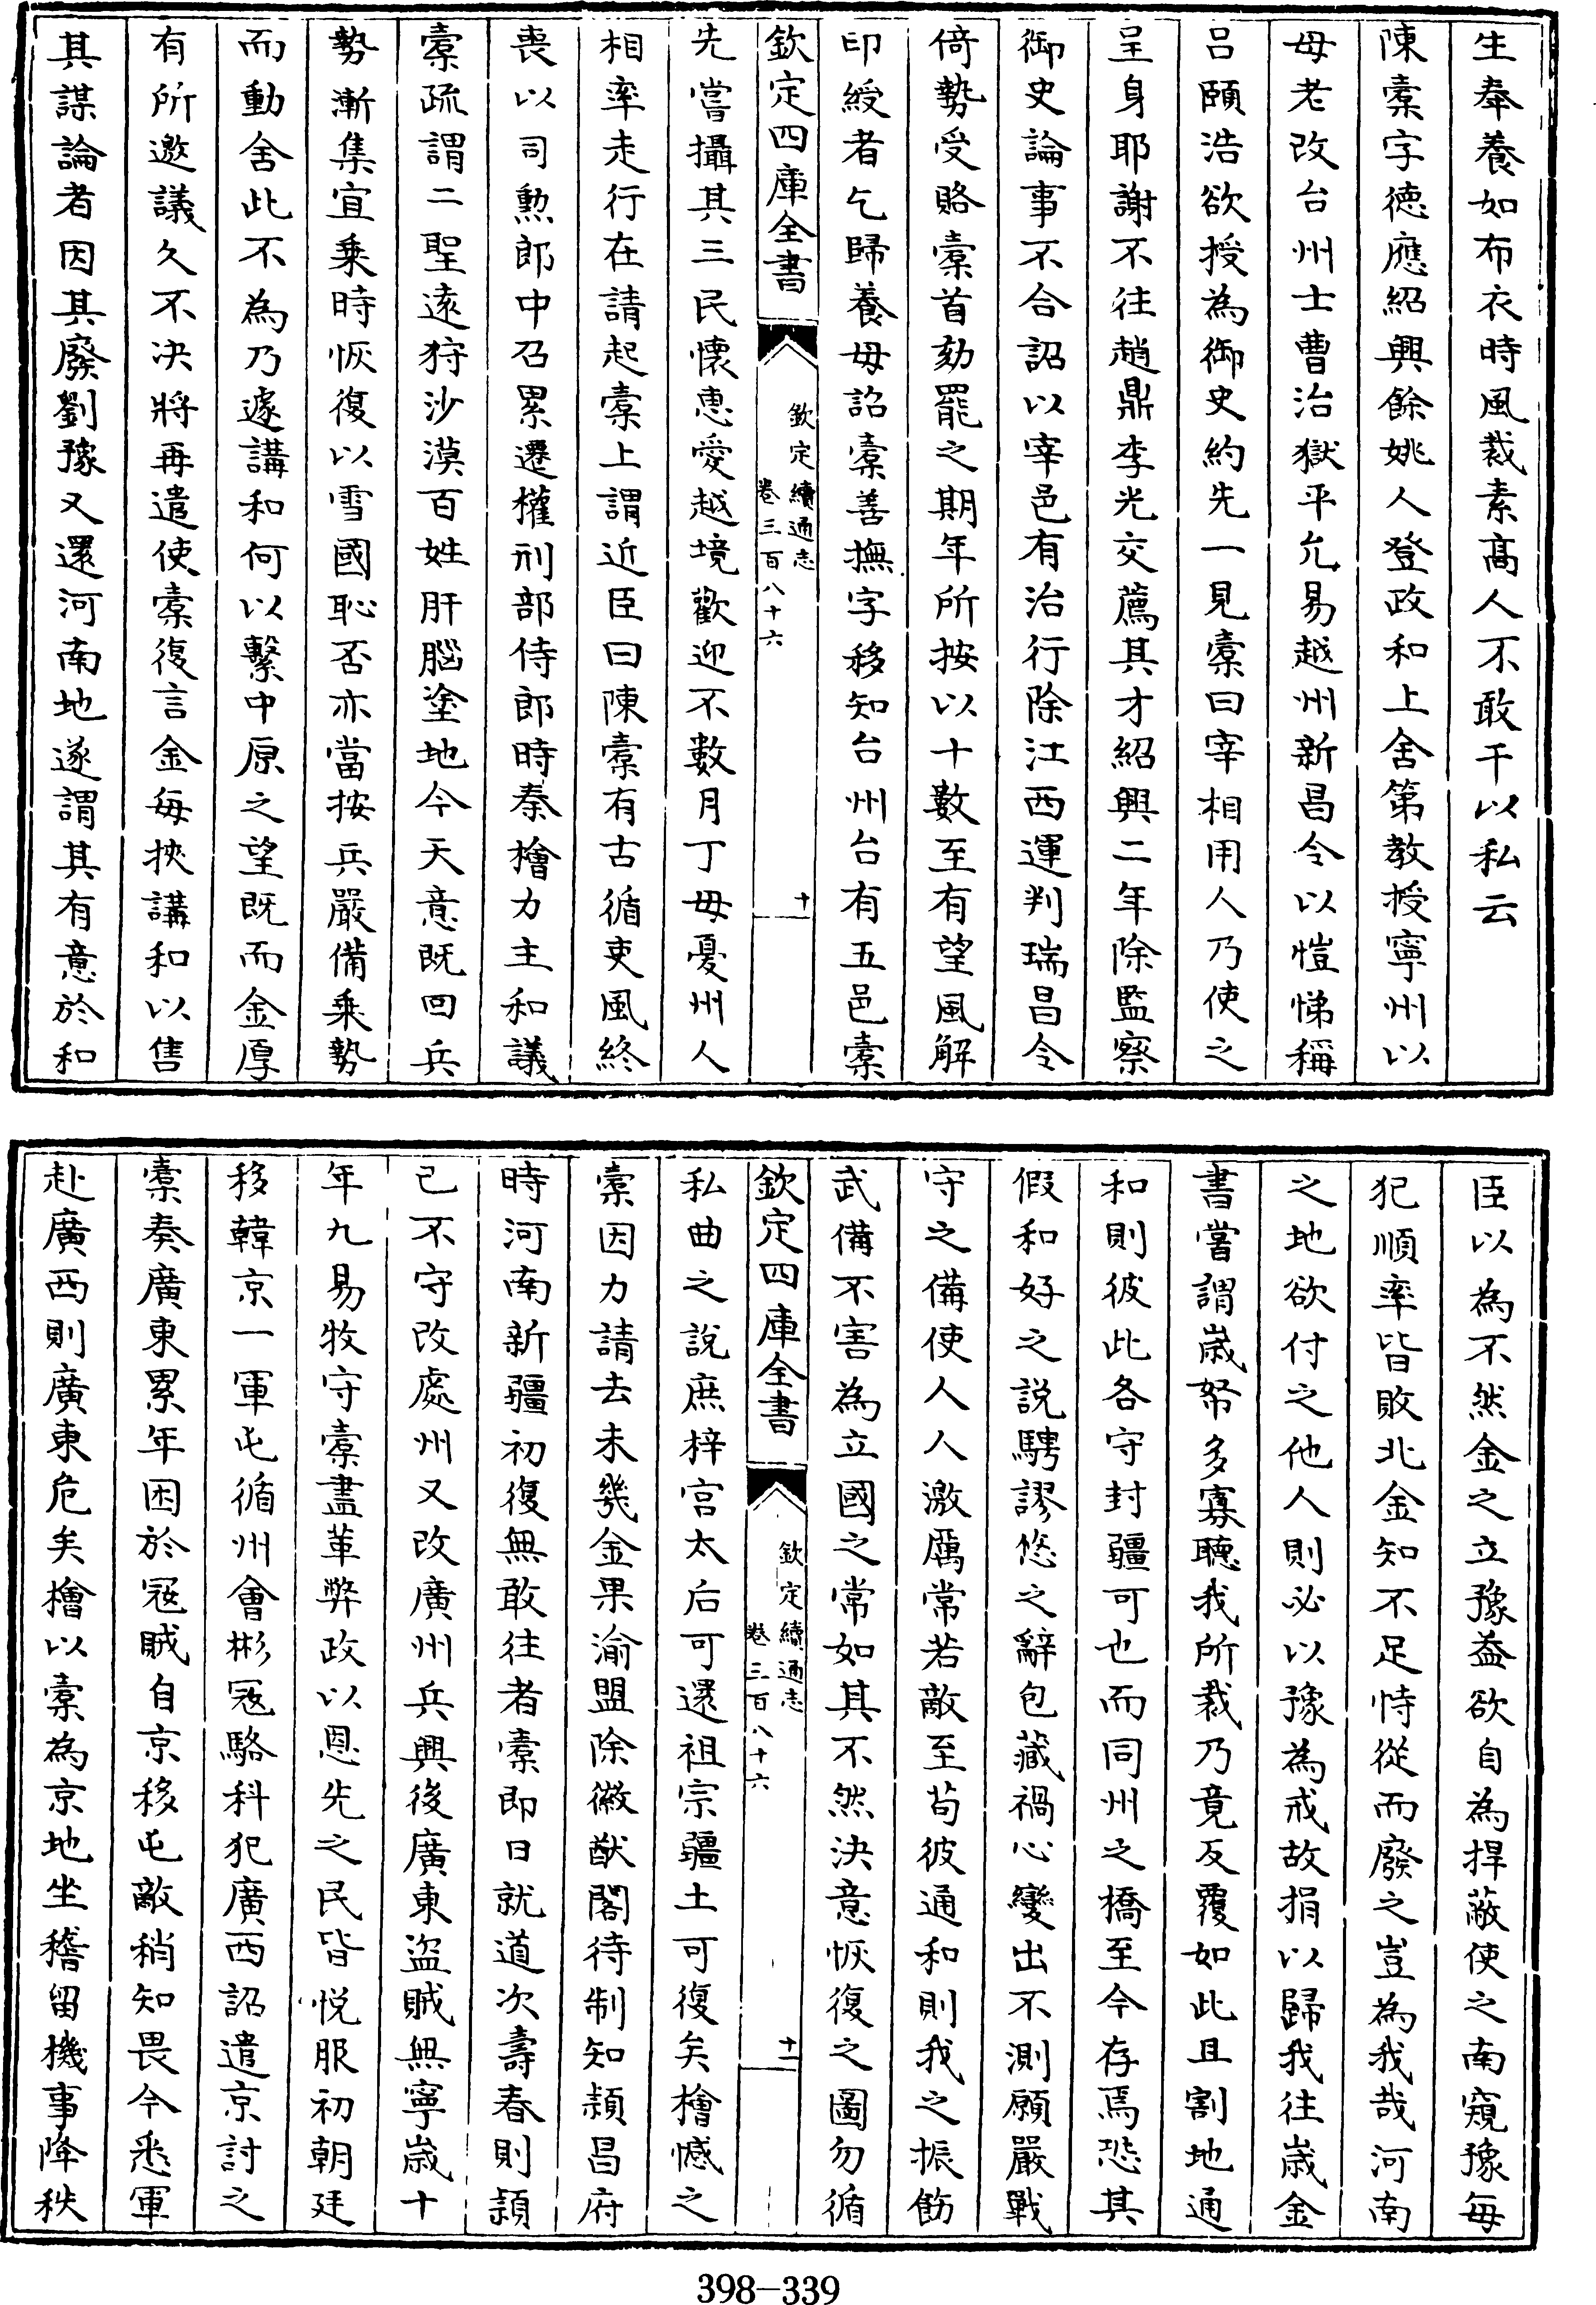 生奉養如布衣時風裁素髙人不敢干以私云
陳橐字德應紹興餘姚人登政和上舍第教授寧州以
母老改台州士曹治獄平允易越州新昌令以愷悌稱
吕頤浩欲授為御史約先一見橐曰宰相用人乃使之
呈身耶謝不往趙鼎李光交薦其才紹興二年除監察
御史論事不合詔以宰邑有治行除江西運判瑞昌令
倚勢受賂橐首劾罷之期年所按以十數至有望風解
印綬者乞歸養母詔橐善撫字移知台州台有五邑橐
欽定四庫全書
欽定續通志
卷三百八十六
十
先嘗攝其三民懷恵愛越境歡迎不數月丁母憂州人
相率走行在請起橐上謂近臣曰陳橐有古循吏風終
喪以司勲郎中召累遷權刑部侍郎時秦檜力主和議
橐疏謂二聖逺狩沙漠百姓肝腦塗地今天意既回兵
勢漸集宜乗時恢復以雪國恥否亦當按兵嚴備乗勢
而動舍此不為乃遽講和何以繫中原之望既而金厚
有所邀議久不決將再遣使橐復言金每挾講和以售
其謀論者因其廢劉豫又還河南地遂謂其有意於和
臣以為不然金之立豫葢欲自為捍蔽使之南窺豫每
犯順率皆敗北金知不足恃從而廢之豈為我哉河南
之地欲付之他人則必以豫為戒故捐以歸我往歲金
書嘗謂歲帑多寡聽我所裁乃竟反覆如此且割地通
和則彼此各守封疆可也而同州之橋至今存焉恐其
假和好之説騁謬悠之辭包藏禍心變出不測願嚴戰
守之備使人人激厲常若敵至茍彼通和則我之振飭
武備不害為立國之常如其不然決意恢復之圖勿循
欽定四庫全書
欽定續通志
卷三百八十六
十一
私曲之說庶梓宫太后可還祖宗疆土可復矣檜憾之
橐因力請去未幾金果渝盟除徽猷閣待制知潁昌府
時河南新疆初復無敢往者橐即日就道次壽春則潁
已不守改處州又改廣州兵興後廣東盜賊無寧歲十
年九易牧守橐盡革弊政以恩先之民皆悅服初朝廷
移韓京一軍屯循州會彬冦駱科犯廣西詔遣京討之
橐奏廣東累年困於冦賊自京移屯敵稍知畏今悉軍
赴廣西則廣東危矣檜以橐為京地坐稽留機事降秩
398-339